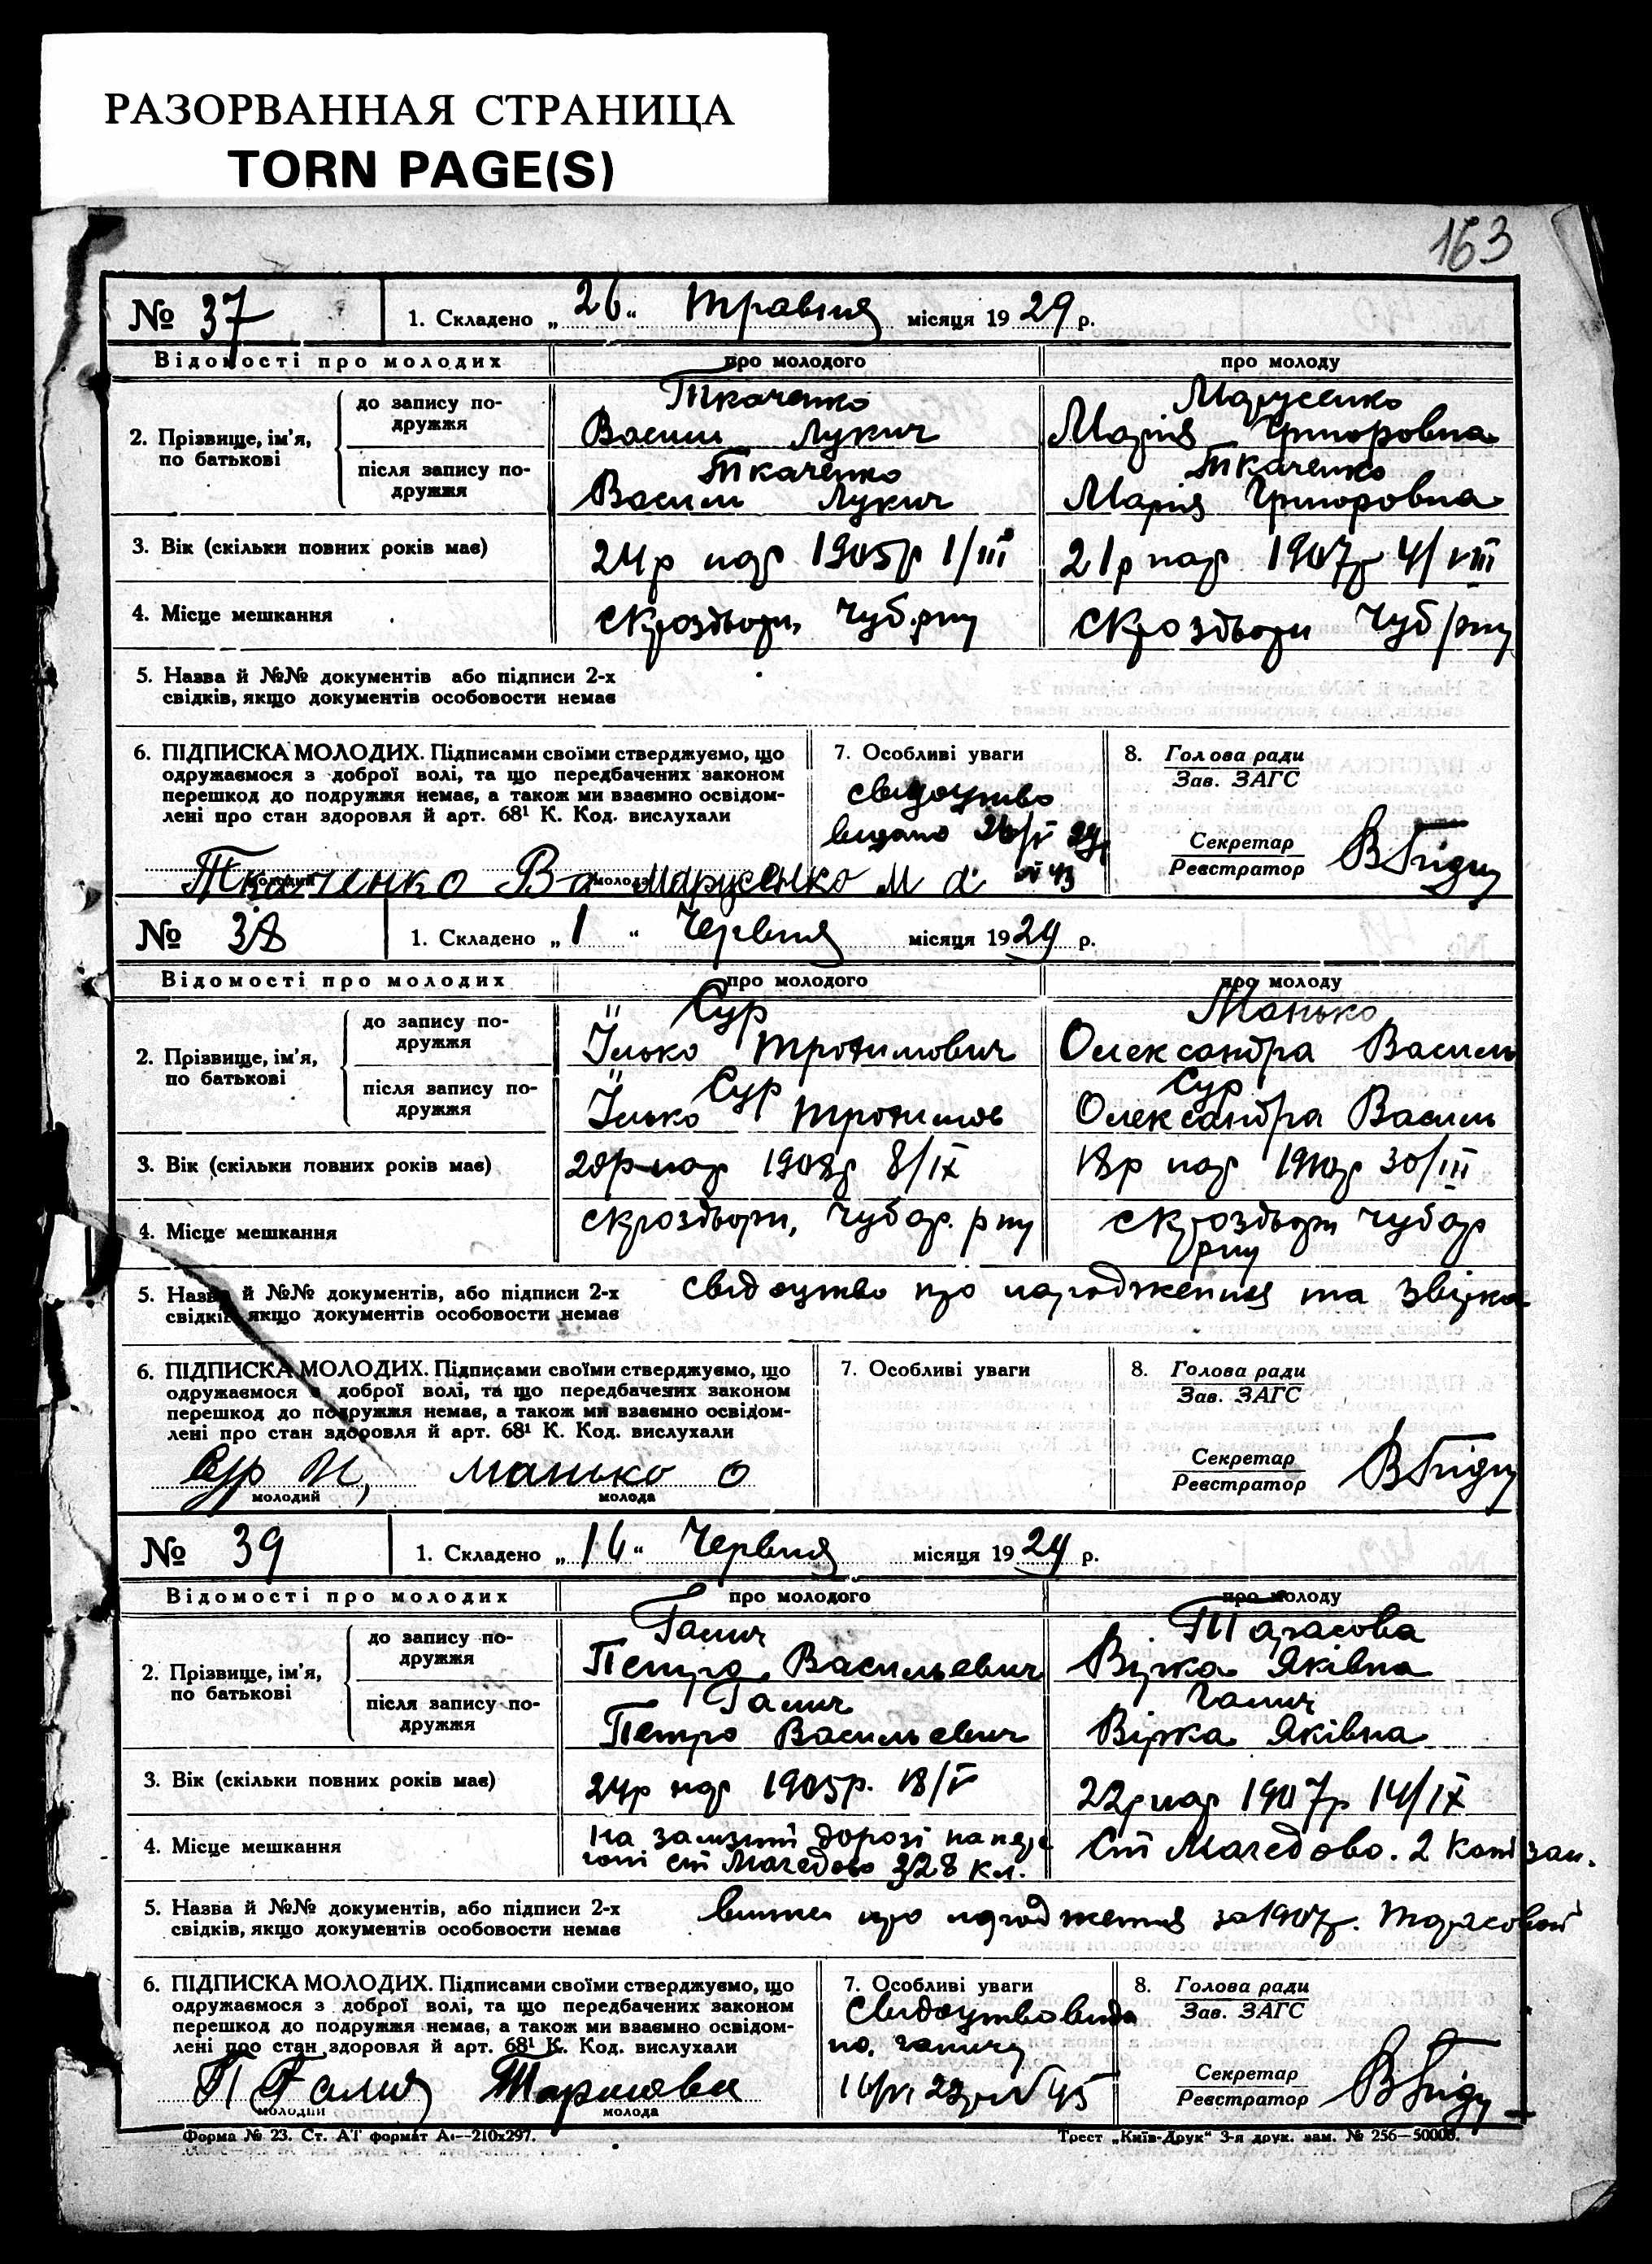 РАЗОРВАННАЯ СТРАНИЦА
TORN PAGE(S)
163
№ 37 1. Складено „ 26 “ травня місяця 19 29 р.
Відомості про молодих про молодого про молоду
Ткаченко Марусенко
до запису подружжя Василь Лукич Марія Григоровна
2. Прізвище, ім'я, по батькові
Ткаченко Ткаченко
після запису подружжя Василь Лукич Марія Григоровна
3. Вік (скільки повних років має) 24р нар 1905р 1/III 21р нар 1907р 4/VIII
4. Місце мешкання Чуб. рну Чуб/рну
5. Назва й №№ документів або підписи 2-х
свідків, якщо документів особовости немає
6. ПІДПИСКА МОЛОДИХ. Підписами своїми стверджуємо, що 7. Особливі уваги 8. Голова ради
одружаємося з доброї волі, та що передбачених законом Зав. ЗАГС
перешкод до подружжя немає, а також ми взаємно освідом- свидоцтво
лені про стан здоровля й арт. 68¹ К. Код. вислухали видано 26/V 29р Секретар
Реєстратор
Ткаченко В Марусенко М № 43
молодий молода
№ 38 1. Складено „ 1 “ Червня місяця 19 29 р.
Відомості про молодих про молодого про молоду
Сур Манько
до запису подружжя Їлько Трохимович Олександра Василь
2. Прізвище, ім'я, по батькові
Сур Сур
після запису подружжя Їлько Трохимов Олександра Василь
3. Вік (скільки повних років має) 20р нар 1908р 8/IX 18р нар 1910р 30/III
4. Місце мешкання Чубар. рну Чубар
рну
5. Назва й №№ документів, або підписи 2-х свідоцтво про народження та звірка
свідків, якщо документів особовости немає
6. ПІДПИСКА МОЛОДИХ. Підписами своїми стверджуємо, що 7. Особливі уваги 8. Голова ради
одружаємося з доброї волі, та що передбачених законом Зав. ЗАГС
перешкод до подружжя немає, а також ми взаємно освідом-
лені про стан здоровля й арт. 68¹ К. Код. вислухали Секретар
Реєстратор
Сур И, Манько О
молодий молода
№ 39 1. Складено „ 16 “ Червня місяця 19 29 р.
Відомості про молодих про молодого про молоду
Галич Тарасова
до запису подружжя Петро Васильевич Вірка Яківна
2. Прізвище, ім'я, по батькові
Галич Галич
після запису подружжя Петро Васильевич Вірка Яківна
3. Вік (скільки повних років має) 24р нар 1905р. 18/V 22р нар 1907р 14/IX
4. Місце мешкання на зализній дорозі Ст Магедово. 2
ст Магедово 328 км.
5. Назва й №№ документів, або підписи 2-х про народження за 1907р. Тарасовой
свідків, якщо документів особовости немає
6. ПІДПИСКА МОЛОДИХ. Підписами своїми стверджуємо, що 7. Особливі уваги 8. Голова ради
одружаємося з доброї волі, та що передбачених законом Свидоцтво вида Зав. ЗАГС
перешкод до подружжя немає, а також ми взаємно освідом-
лені про стан здоровля й арт. 68¹ К. Код. вислухали но. Галичу Секретар
Реєстратор
П Галич Тарасова № 45
молодий молода
Форма № 23. Ст. АТ формат А₄—210х297. Трест „Київ-Друк“ 3-я друк. зам. № 256—50000.